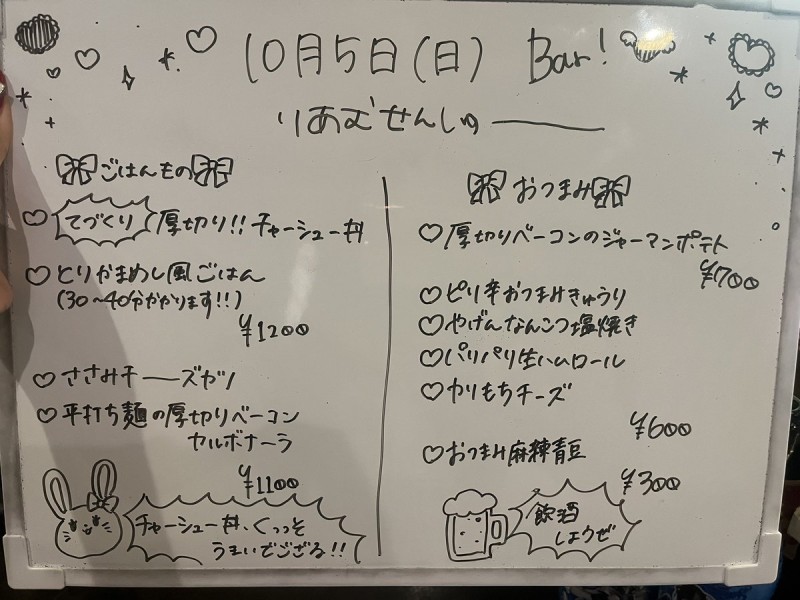 10月5日(日) Bar!
りあむせんしゅ―
ごはんもの
てづくり 厚切り!! チャーシュー丼
とりかまめし風ごはん
(30〜40分かかります!!)
¥1200
ささみチーズカツ
平打ち麺の厚切りベーコン
カルボナーラ
¥1100
チャーシュー丼、くっっそ
うまいでござる!!
おつまみ
厚切りベーコンのジャーマンポテト
¥700
ピリ辛おつまみきゅうり
やげんなんこつ塩焼き
パリパリ生ハムロール
カリもちチーズ
¥600
おつまみ麻辣青豆
¥300
飲酒
しようぜ